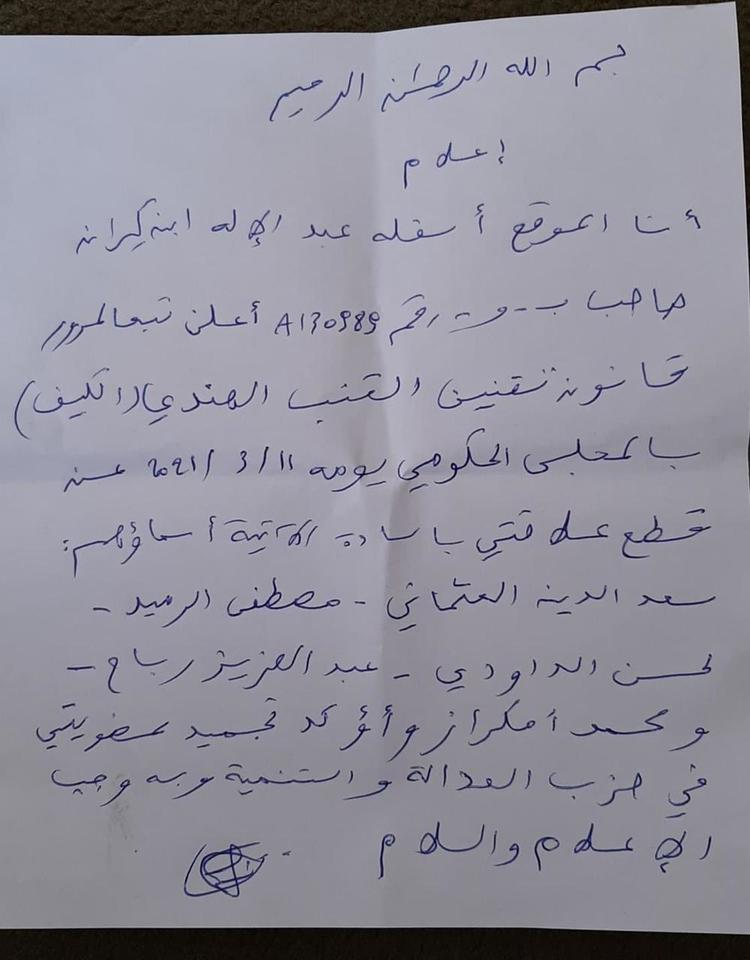 بسم الله الرحمان الرحيم
إعلام
أنا الموقع أسفله عبد الإله ابن كيران
صاحب ب-و- رقم A130989 أعلن تبعا لمرور
قانون تقنين القنب الهندي (الكيف)
بالمجلس الحكومي يومه 11/3/2021 عن
قطع علاقتي بالسادة الآتية أسماؤهم:
سعد الدين العثماني - مصطفى الرميد -
لحسن الداودي - عبد العزيز رباح -
ومحمد أمكراز وأؤكد تجميد عضويتي
في حزب العدالة والتنمية وبه وجب
الإعلام والسلام